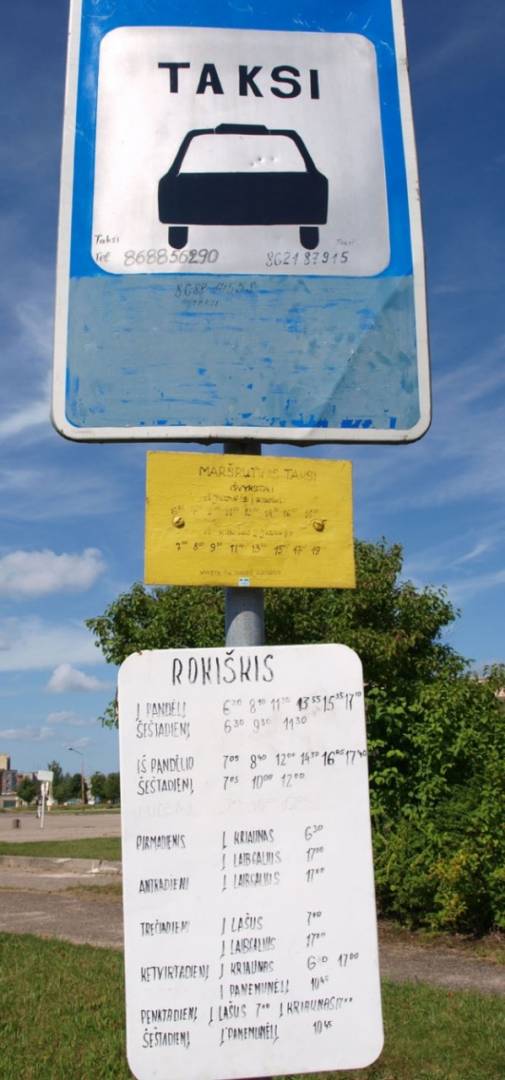 TAKSI
Taksi Taksi
Tel. 868856290 862187915
MARŠRUTINIS TAKSI
IŠVYKSTA
7⁰⁰ 8⁰⁰ 9⁰⁰ 11⁰⁰ 13⁰⁰ 15⁰⁰ 17 19
ROKIŠKIS
Į PANDĖLĮ 6³⁰ 8¹⁰ 11³⁰ 13⁵⁵ 15³⁵ 17¹⁰
ŠEŠTADIENĮ 6³⁰ 9³⁰ 11³⁰
IŠ PANDĖLIO 7⁰⁵ 8⁴⁰ 12⁰⁰ 14³⁰ 16⁰⁵ 17⁴⁰
ŠEŠTADIENĮ 7⁰⁵ 10⁰⁰ 12⁰⁰
PIRMADIENIS Į KRIAUNAS 6³⁰
Į LAIBGALIUS 17⁰⁰
ANTRADIENĮ Į LAIBGALIUS 17⁰⁰
TREČIADIENĮ Į LAŠUS 7⁰⁰
Į LAIBGALIUS 17⁰⁰
KETVIRTADIENĮ Į KRIAUNAS 6³⁰ 17⁰⁰
Į PANEMUNĖLĮ 10⁴⁵
PENKTADIENĮ Į LAŠUS 7⁰⁰ Į KRIAUNAS 17⁰⁰
ŠEŠTADIENĮ Į PANEMUNĖLĮ 10⁴⁵